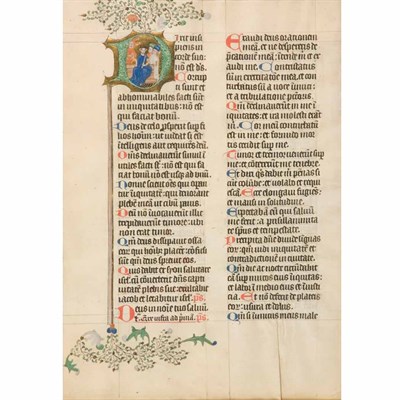 Dixit insi
piens in
corde suo:
nō est ds.
Corrup
ti sunt et
abhominabiles facti sūt
in iniquitatibus: nō est
qui faciat bonū.
Deus de celo prospexit sup fi
lios hoīm: ut videat si est i
telligens aut requirēs dm̄.
Om̄s declinaverūt simul i
utiles facti sūt: nō est qui fa
ciat bonū nō est usqʒ ad unū.
Nonne scient oēs qui opan
tur iniquitatē: qui devorant
plebē meā ut cibū panis.
Deū nō invocaverūt illic
trepidaverūt timore: ubi
non erat timor.
Qm̄ deus dissipavit ossa
eor qui hoībʒ placēt: cōfusi
sūnt: qm̄ deus sprevit eos.
Quis dabit ex syon salutare
isrl: cū cōverterit dn̄s capti
vitatē plebis sue exultabit
iacob et letabitur isrl. ps
Deus in noīe tuo salvū
Exaudi deus orationem
meā: et ne despexeris de
pcationē meā: intende michi
et exaudi me. Contristatus
sum in exercitatōe mea: et con
turbatus sū a voce inimici:
et a tribulatione pctoris.
Qm̄ declinaverūt in me i
iquitates: et in ira molesti erāt
m̄. Cor meū conturbatū
est in me: et formido mor
tis cecidit sup me.
Timor et tremor venerūt sup
me: et cōtexerūt me tenebre.
Et dixi qs dabit m̄ pēnas si
cut colūbe: et volabo et requi
escā. Ecce elongavi fugiēs:
et mansi in solitudine.
Expectabā eū qui salvū
me fecit: a pusillanimita
te spūs et tempestate.
Precipita dn̄e divide linguas
eor: qm̄ vidi iniquitatē et
contradictionē in civitate.
Qm̄ die ac nocte circūdabit
eā sup muros eius iniquitas:
et labor ī medio eius et īiustici
a. Et nō defecit de plateis
eor: usura et dolus.
Qm̄ si inimicus meus male